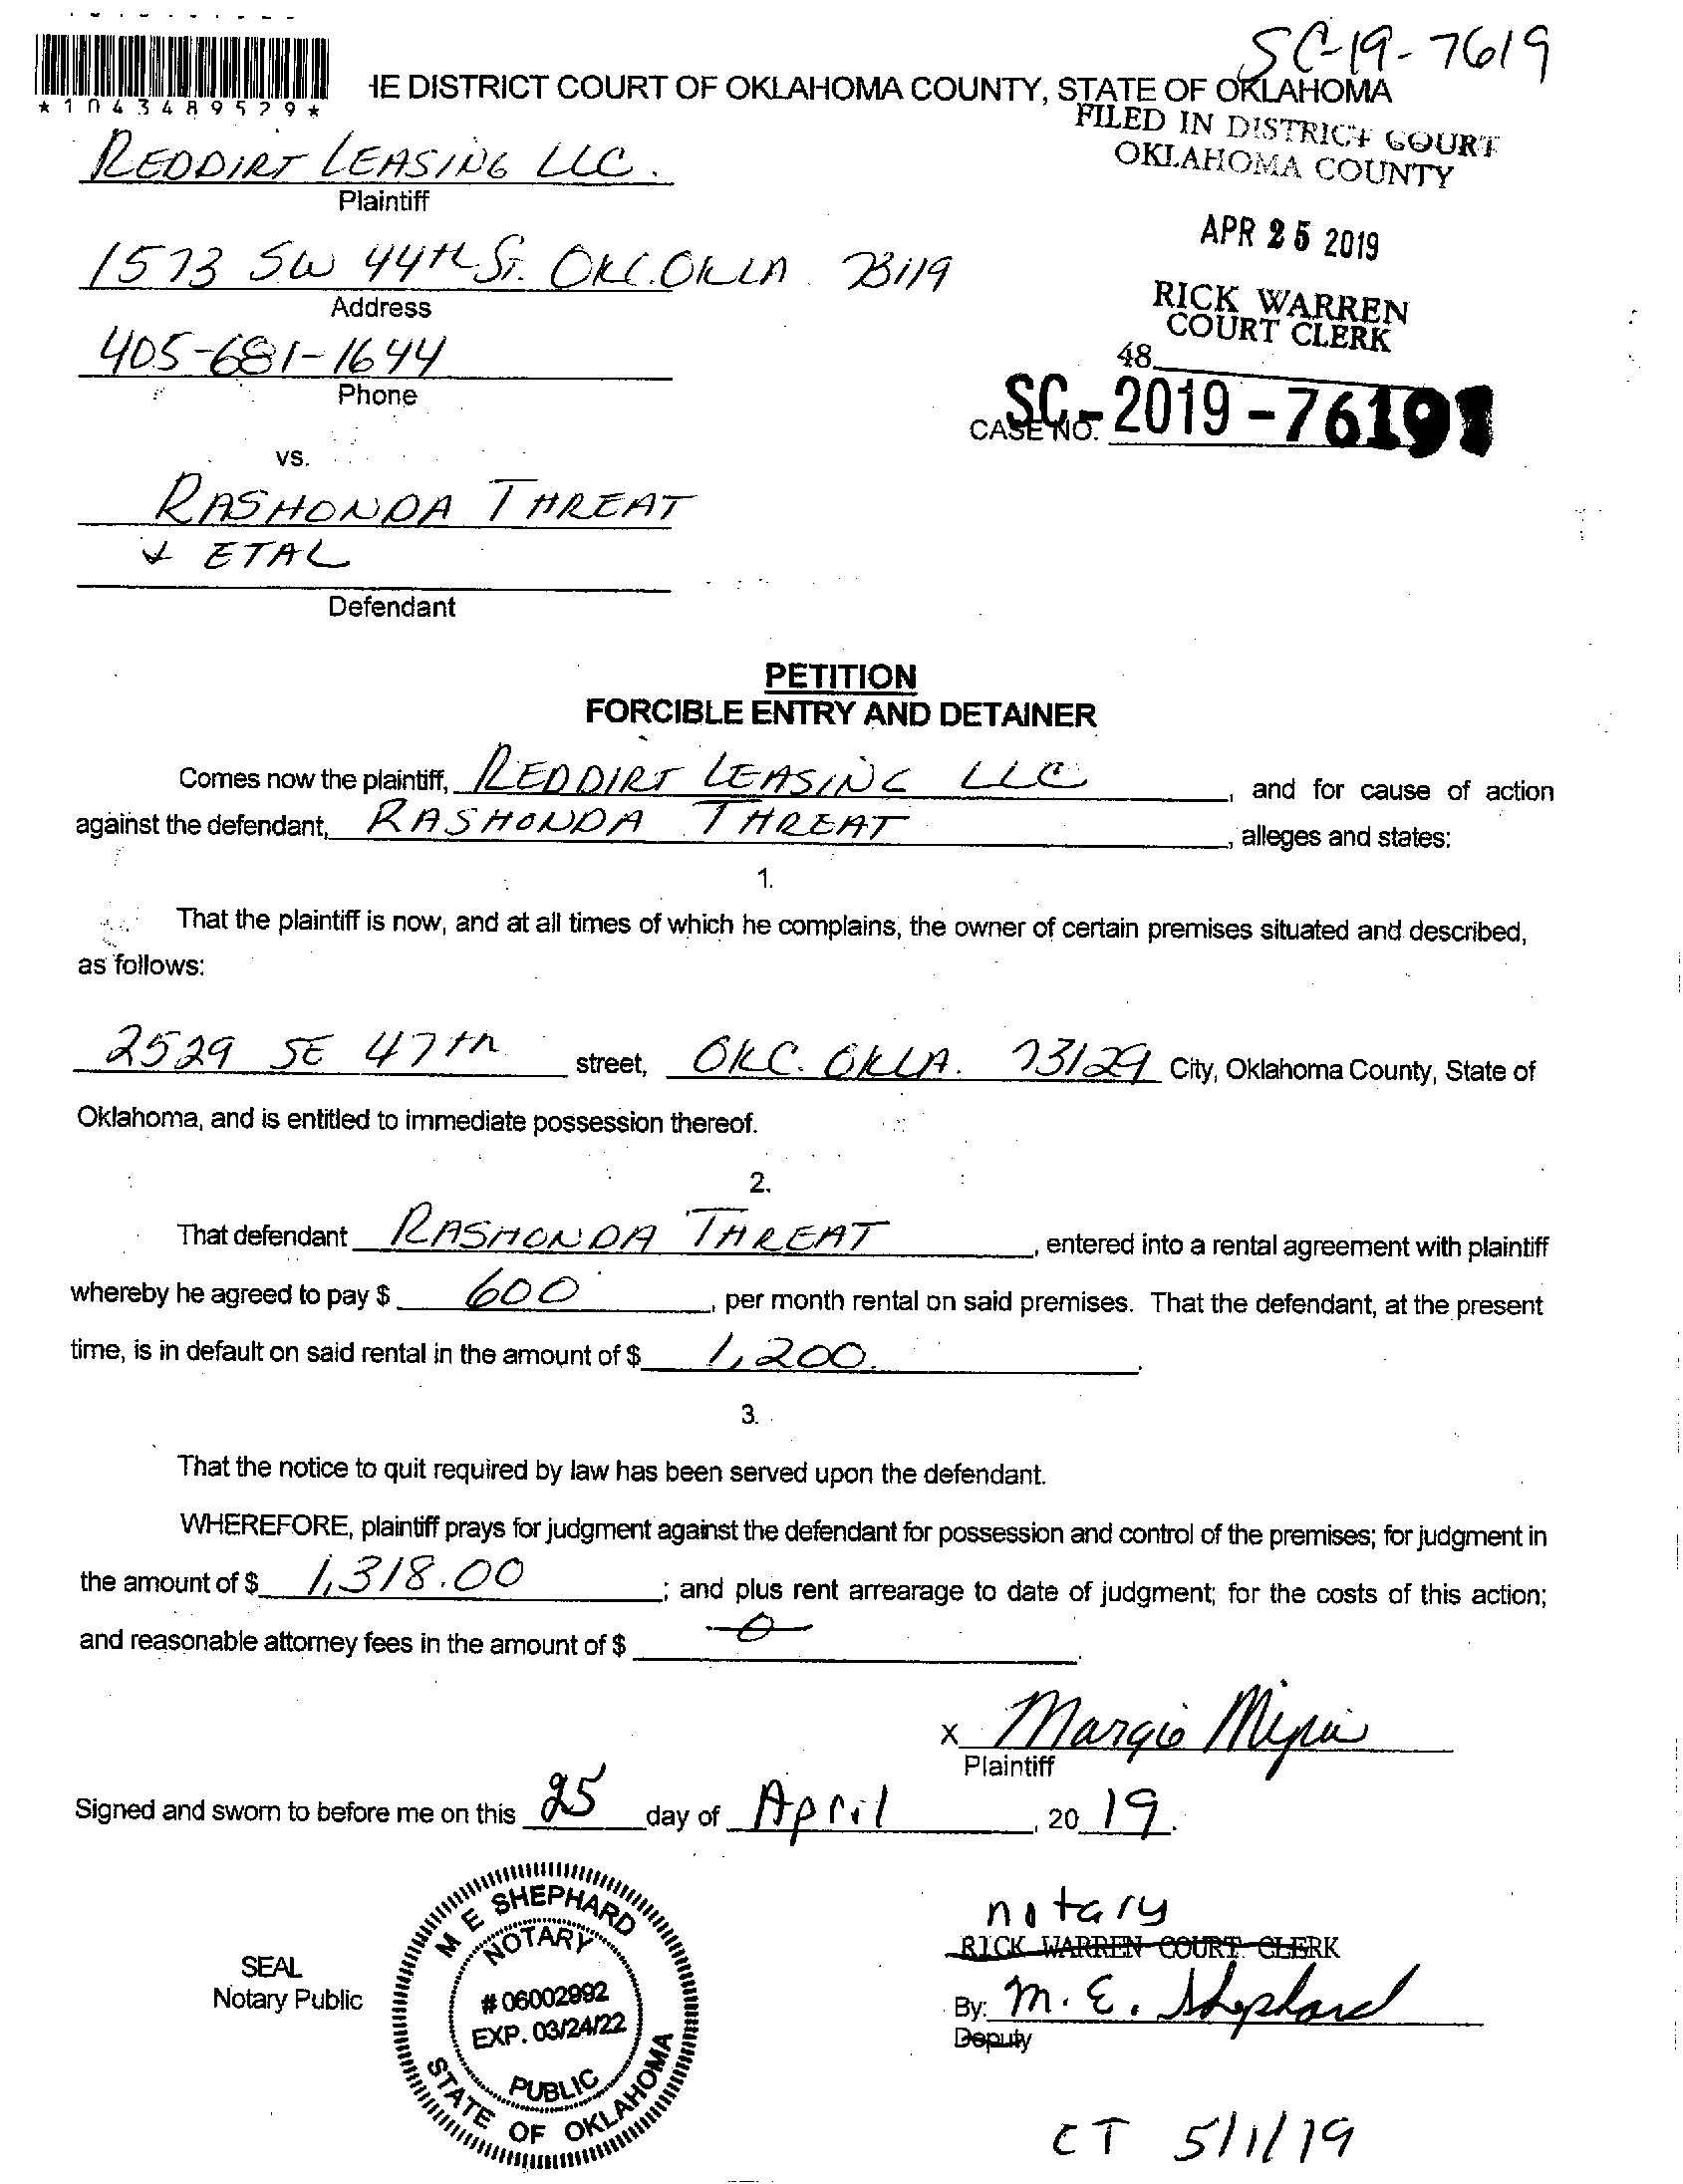 SC-19-7619
*1043489529*
IE DISTRICT COURT OF OKLAHOMA COUNTY, STATE OF OKLAHOMA
FILED IN DISTRICT COURT
OKLAHOMA COUNTY
REDDIRT LEASING LLC.
Plaintiff
APR 25 2019
1573 SW 44th St. OKC. OKLA 73119
Address
RICK WARREN
COURT CLERK
405-681-1644
Phone
48
CASE NO. SC-2019-7619
vs.
RASHONDA THREAT
& ETAL
Defendant
PETITION
FORCIBLE ENTRY AND DETAINER
Comes now the plaintiff, REDDIRT LEASING LLC, and for cause of action
against the defendant, RASHONDA THREAT, alleges and states:
1.
That the plaintiff is now, and at all times of which he complains, the owner of certain premises situated and described,
as follows:
2529 SE 47th street, OKC. OKLA. 73129 City, Oklahoma County, State of
Oklahoma, and is entitled to immediate possession thereof.
2.
That defendant RASHONDA THREAT, entered into a rental agreement with plaintiff
whereby he agreed to pay $ 600, per month rental on said premises. That the defendant, at the present
time, is in default on said rental in the amount of $ 1,200.
3.
That the notice to quit required by law has been served upon the defendant.
WHEREFORE, plaintiff prays for judgment against the defendant for possession and control of the premises; for judgment in
the amount of $ 1,318.00; and plus rent arrearage to date of judgment; for the costs of this action;
and reasonable attorney fees in the amount of $ 0.
x Margie
Plaintiff
Signed and sworn to before me on this 25 day of April, 2019.
notary
RICK WARREN COURT CLERK
SEAL
Notary Public
M E SHEPHARD
NOTARY
# 06002992
EXP. 03/24/22
PUBLIC
STATE OF OKLAHOMA
By: M. E. Shephard
Deputy
CT 5/1/19